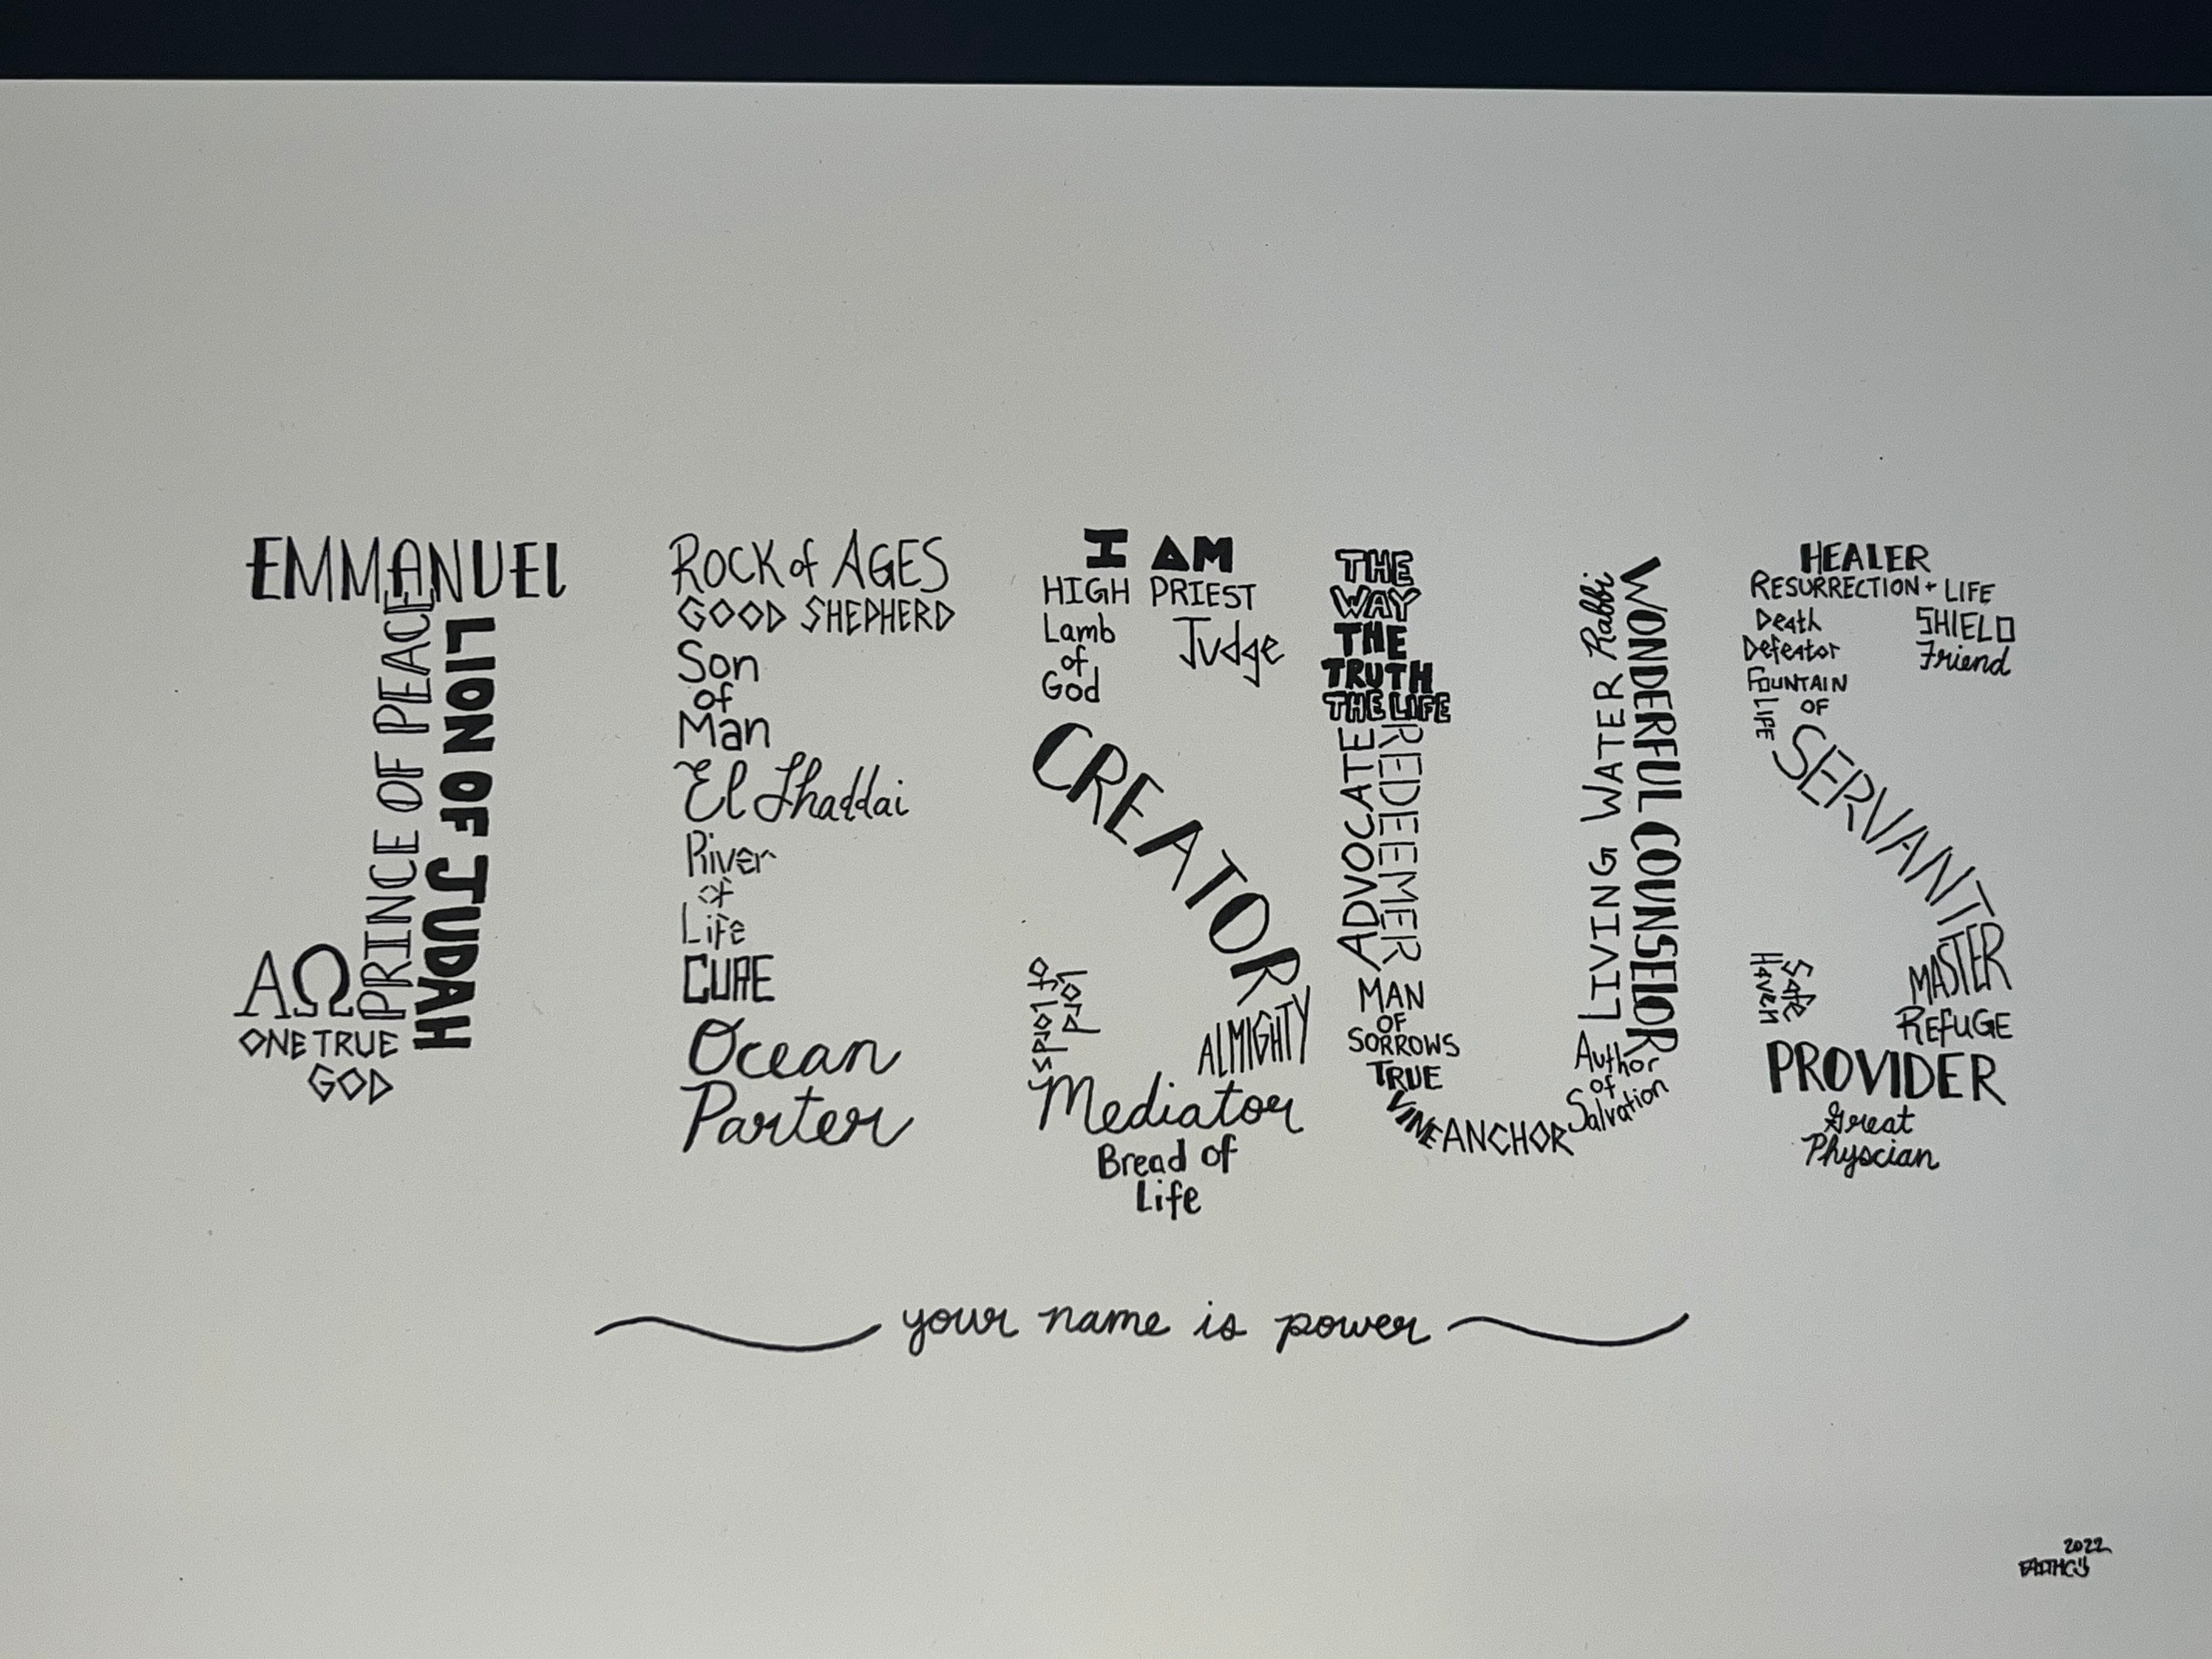 EMMANUEL
PRINCE OF PEACE
LION OF JUDAH
AΩ
ONE TRUE
GOD
ROCK of AGES
GOOD SHEPHERD
Son
of
Man
El Shaddai
River
of
Life
CURE
Ocean
Parter
I AM
HIGH PRIEST
Lamb
of
God
Judge
CREATOR
Lord
of lords
ALMIGHTY
Mediator
Bread of
Life
THE
WAY
THE
TRUTH
THE LIFE
ADVOCATE
REDEEMER
MAN
OF
SORROWS
TRUE
VINE
ANCHOR
Author
of
Salvation
LIVING WATER
Rabbi
WONDERFUL COUNSELOR
HEALER
RESURRECTION + LIFE
Death
Defeator
SHIELD
Friend
FOUNTAIN
OF
LIFE
SERVANT
MASTER
REFUGE
Safe
Haven
PROVIDER
Great
Physcian
your name is power
2022